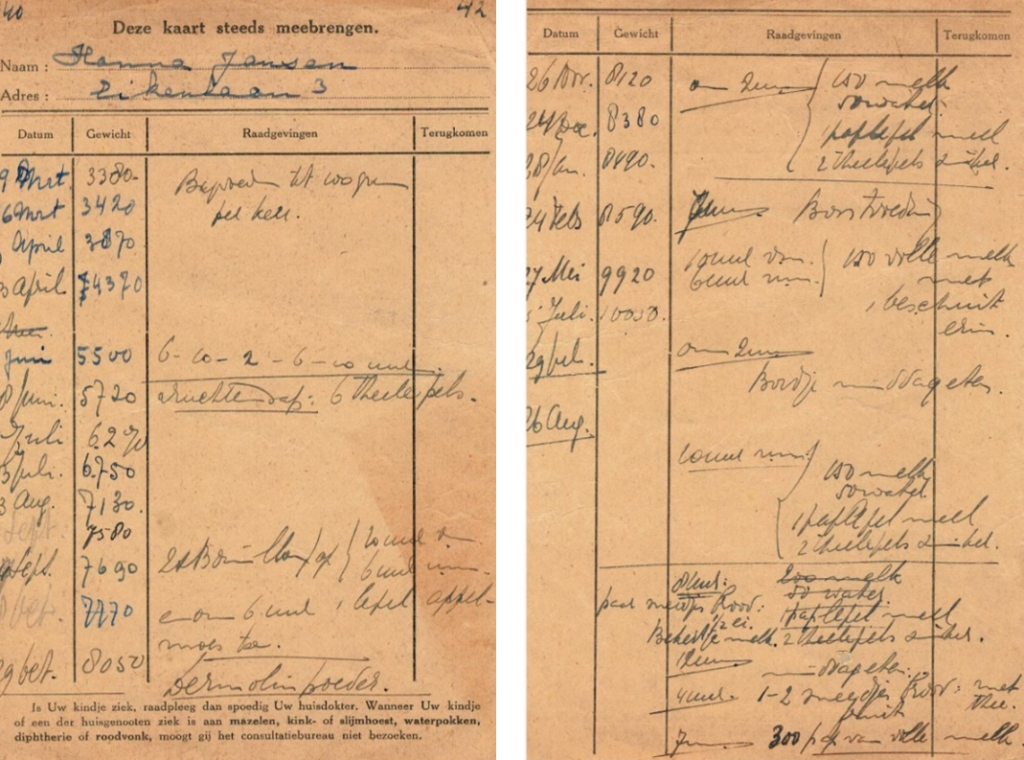 40 42
Deze kaart steeds meebrengen.
Naam : Hanna Jansen
Adres : Eikenlaan 3
Datum Gewicht Raadgevingen Terugkomen
9 Mrt. 3380
6 Mrt 3420
April 3870
April. 4370
Juni 5500 6-10-2-6-10 uur.
8 Juni. 5720 vruchtensap: 6 theelepels.
Juli 6270
Juli. 6750
3 Aug. 7130.
Sept. 7580
Sept. 7690
Oct. 7770 om 6 uur 1 lepel appel-
moes toe.
29 Oct. 8050
Dermolin poeder.
Is Uw kindje ziek, raadpleeg dan spoedig Uw huisdokter. Wanneer Uw kindje
of een der huisgenooten ziek is aan mazelen, kink- of slijmhoest, waterpokken,
diphtherie of roodvonk, moogt gij het consultatiebureau niet bezoeken.
Datum Gewicht Raadgevingen Terugkomen
26 Nov. 8120 om 2 uur 150 melk
50 water
24 Dec. 8380 1 paplepel meel
28 Jan. 8490. 2 theelepels suiker.
24 Feb 8590. Borstvoeding
10 uur vm. 150 volle melk
27 Mei 9920 6 uur nm. met
1 beschuit
Juli. 10050. erin.
29 Juli. om 2 uur
Bordje middageten.
26 Aug.
10 uur nm. 150 melk
50 water
1 paplepel meel
2 theelepels suiker.
8 uur: 200 melk
50 water
paar sneedjes Brood: 1 paplepel meel
1/2 ei.
Bekertje melk. 2 theelepels suiker.
12 uur middageten.
4 uur. 1-2 sneedje Brood: met
fruit thee.
7 uur 300 pap van volle melk.